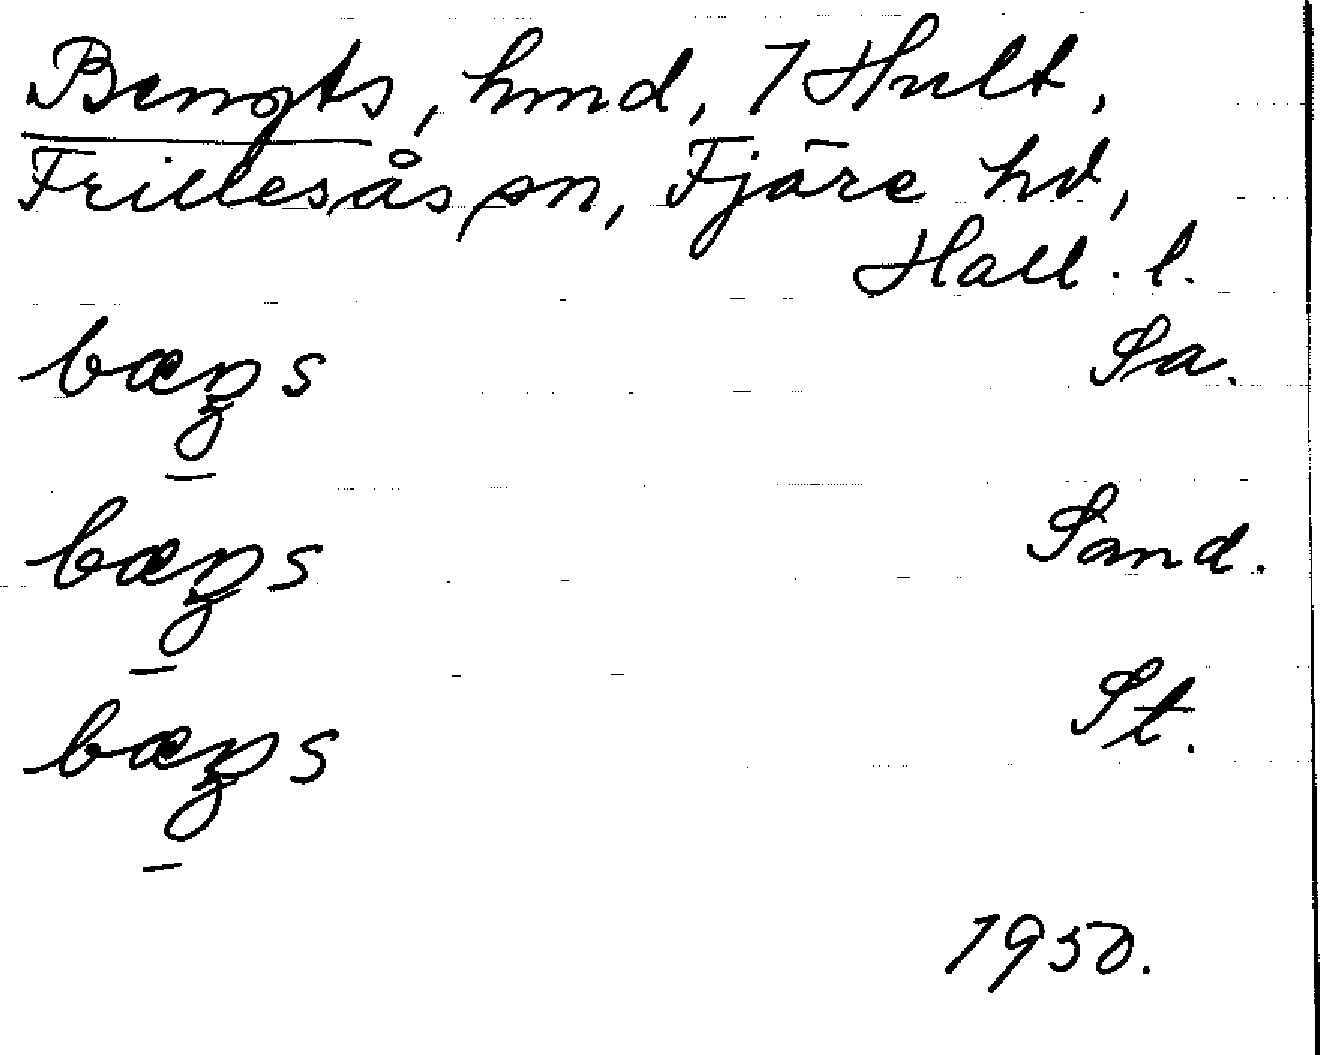 Bengts, hmd, 7 Hult,
Frillesås sn, Fjäre hd,
Hall. l.
bæŋs Sa.
bæŋs Sand.
bæŋs St.
1950.